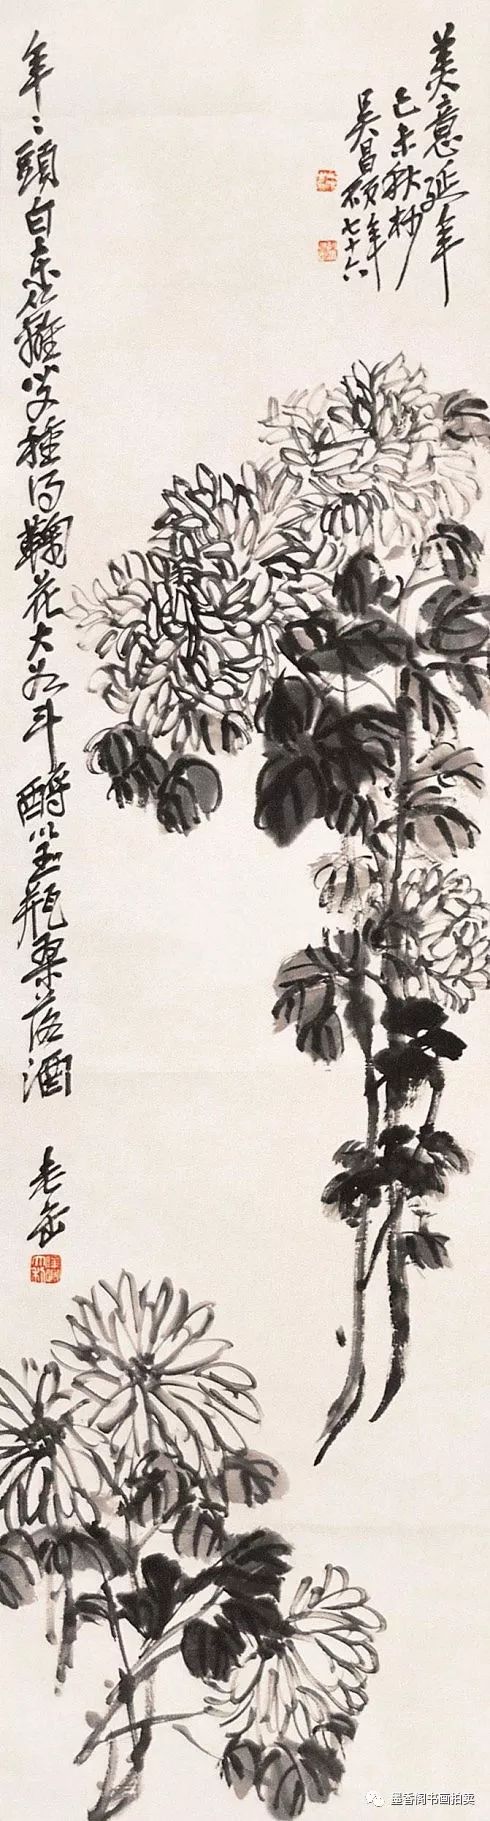 美意延年
己未秋杪
吳昌碩年七十六
年〻頭白東籬叟種得鞠花大如斗酹以玉瓶桑落酒
老缶
墨香阁书画拍卖